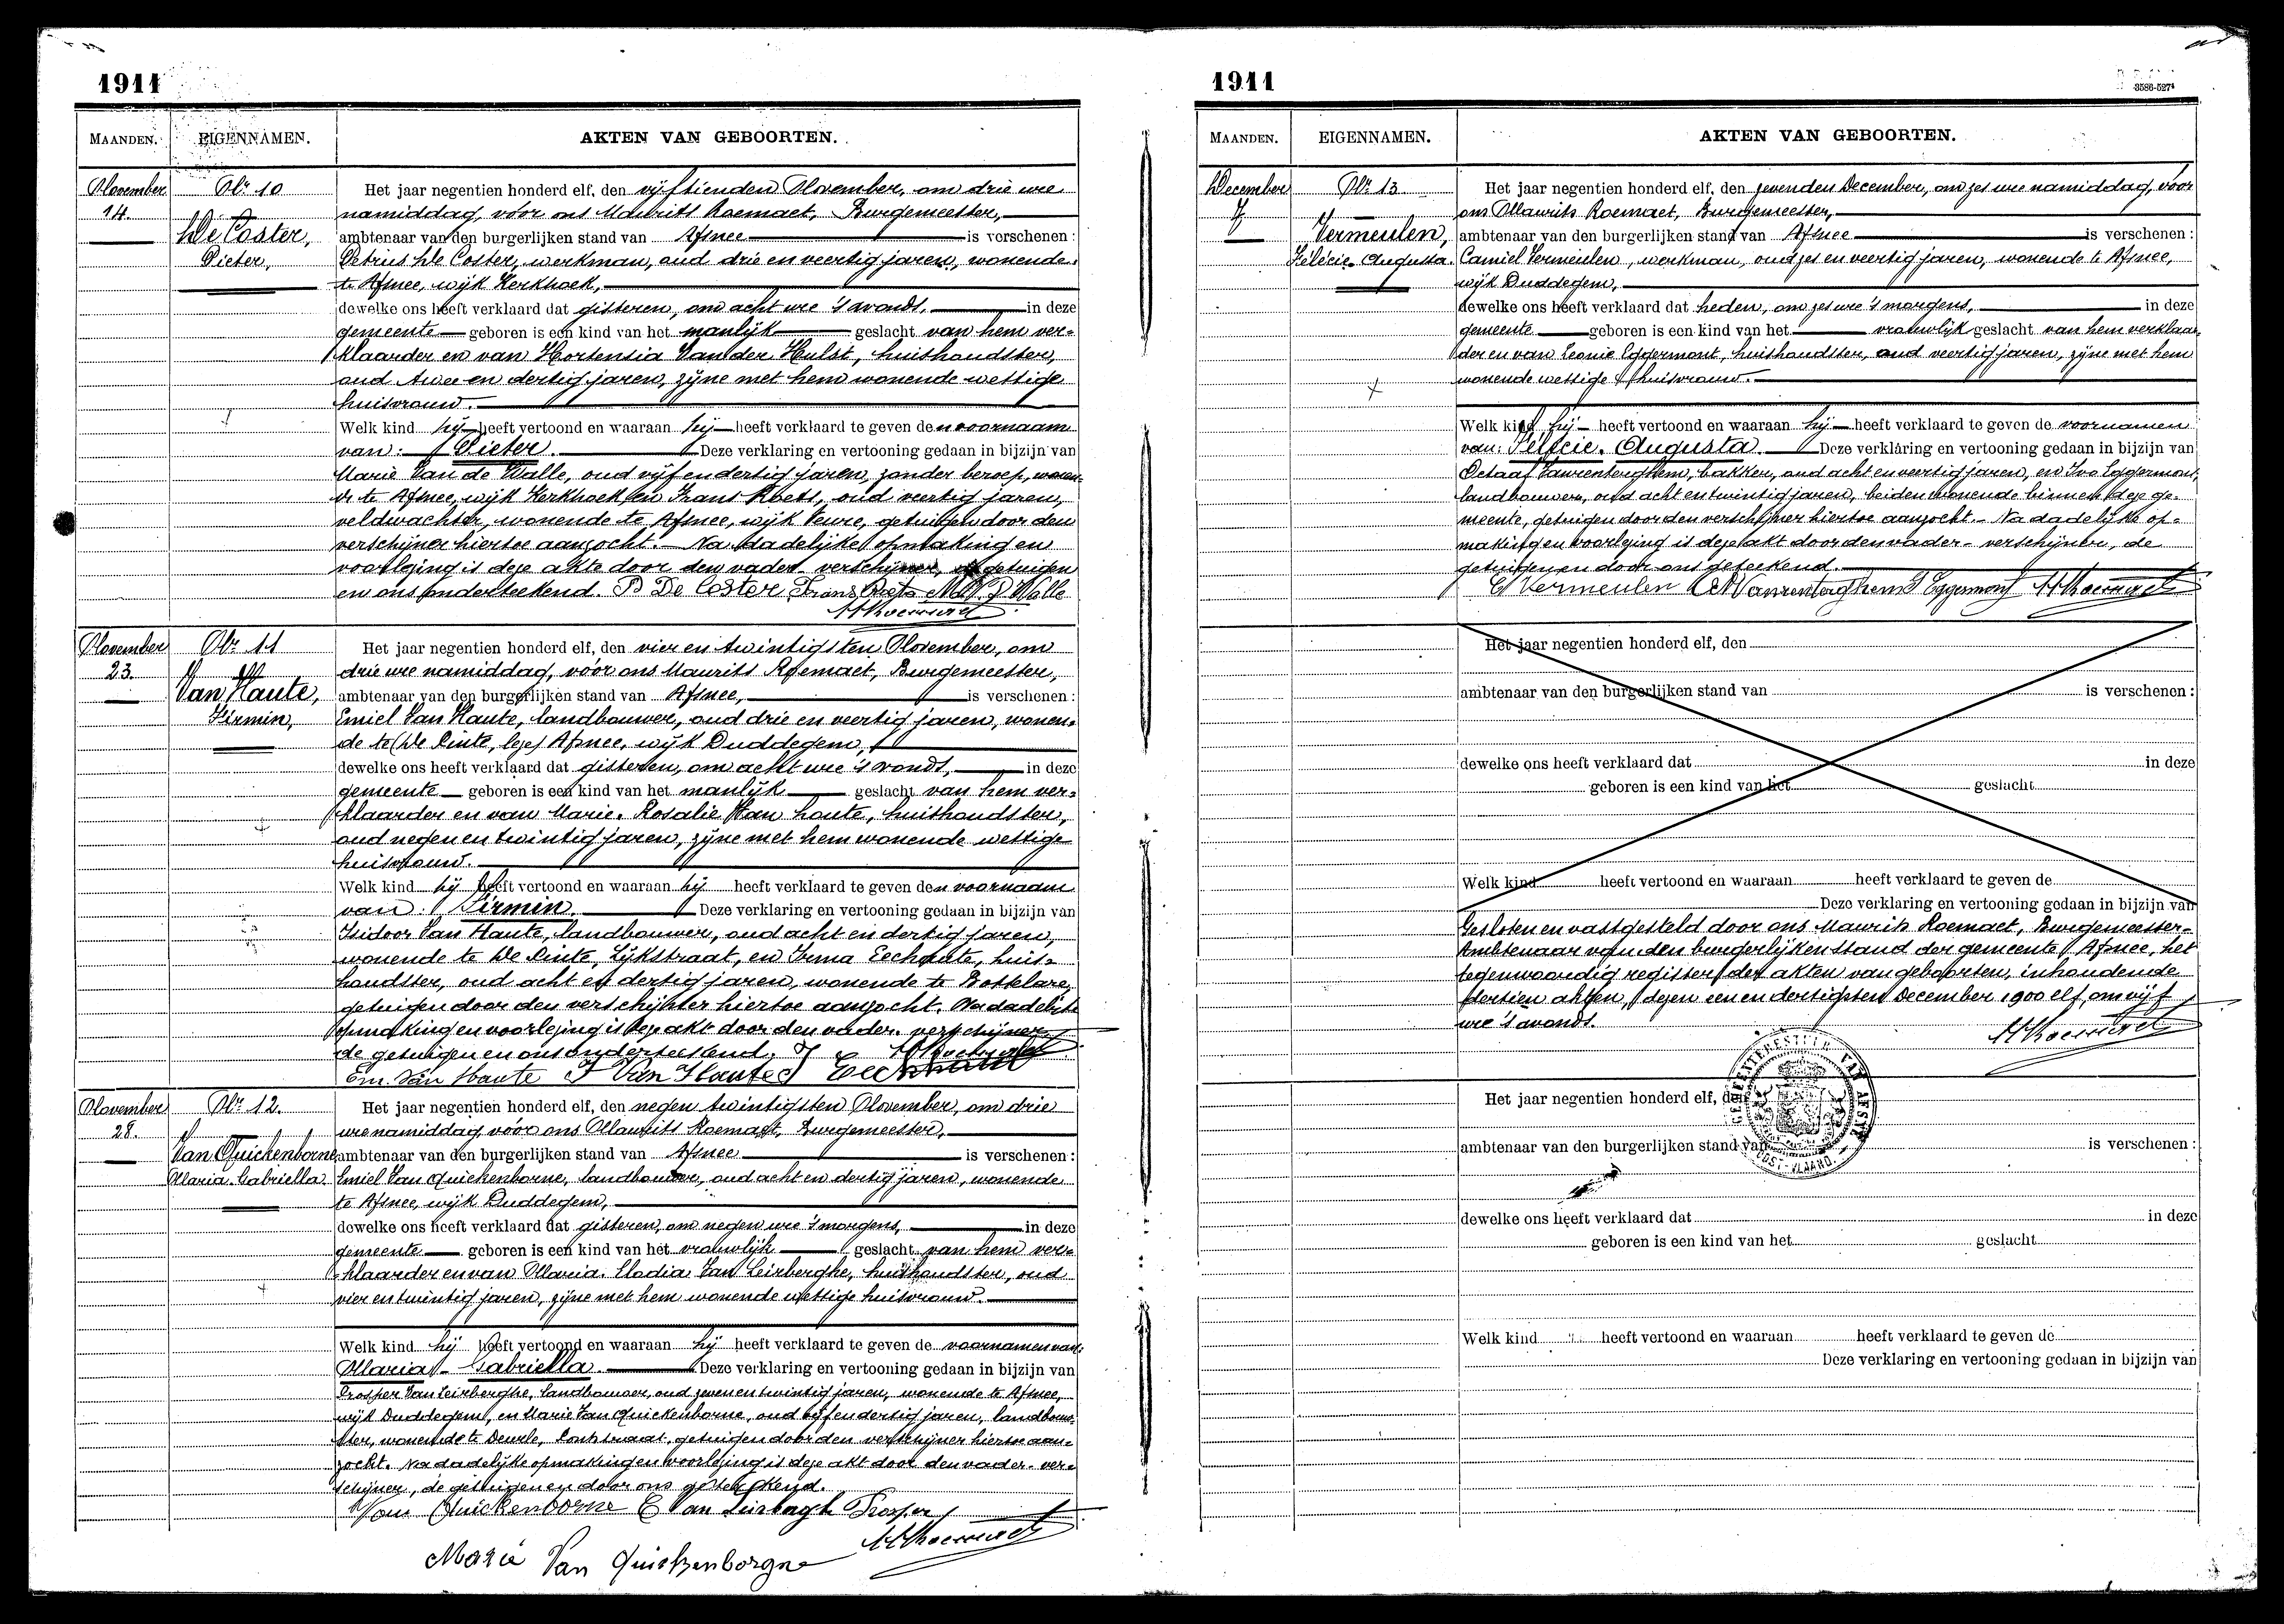 1911
MAANDEN. EIGENNAMEN. AKTEN VAN GEBOORTEN.
November Nr. 10 Het jaar negentien honderd elf, den vijftienden November, om drie ure
14. namiddag, vóór ons Maurits Roemaet, Burgemeester,
De Coster, ambtenaar van den burgerlijken stand van Afsnee is verschenen:
Pieter, Petrus De Coster, werkman, oud drie en veertig jaren, wonende
te Afsnee, wijk Kerkhoek,
dewelke ons heeft verklaard dat gisteren, om acht ure 's avonds, in deze
gemeente geboren is een kind van het manlijk geslacht van hem ver-
klaarder en van Hortensia Van der Hulst, huishoudster,
oud twee en dertig jaren, zijne met hem wonende wettige
huisvrouw.
Welk kind hij heeft vertoond en waaraan hij heeft verklaard te geven den voornaam
van: Pieter. Deze verklaring en vertooning gedaan in bijzijn van
Marie Van de Walle, oud vijf en dertig jaren, zonder beroep, wonen-
de te Afsnee, wijk Kerkhoek en Frans Roets, oud veertig jaren,
veldwachter, wonende te Afsnee, wijk Veure, getuigen door den
verschijner hiertoe aanzocht. Na dadelijke opmaking en
voorlezing is deze akte door den vader verschijner, de getuigen
en ons onderteekend. P De Coster Frans Roets M. V. D Walle
M Roemaet
November Nr. 11 Het jaar negentien honderd elf, den vier en twintigsten November, om
23. drie ure namiddag, vóór ons Maurits Roemaet, Burgemeester,
Van Haute, ambtenaar van den burgerlijken stand van Afsnee, is verschenen:
Firmin, Emiel Van Haute, landbouwer, oud drie en veertig jaren, wonen-
de te (De Pinte, lees) Afsnee, wijk Duddegem,
dewelke ons heeft verklaard dat gisteren, om acht ure 's avonds, in deze
gemeente geboren is een kind van het manlijk geslacht van hem ver-
klaarder en van Marie-Rosalie Van houte, huishoudster,
oud negen en twintig jaren, zijne met hem wonende wettige
huisvrouw.
Welk kind hij heeft vertoond en waaraan hij heeft verklaard te geven den voornaam
van: Firmin. Deze verklaring en vertooning gedaan in bijzijn van
Isidoor Van Haute, landbouwer, oud acht en dertig jaren,
wonende te De Pinte, Lijkstraat, en Irma Eechaute, huis-
houdster, oud acht en dertig jaren, wonende te Bottelare,
getuigen door den verschijner hiertoe aanzocht. Na dadelijke
opmaking en voorlezing is deze akt door den vader-verschijner
de getuigen en ons onderteekend. M Roemaet
Em. Van Haute I Van Haute
November Nr. 12. Het jaar negentien honderd elf, den negen twintigsten November, om drie
28. ure namiddag, vóór ons Maurits Roemaet, Burgemeester,
Van Quickenborne ambtenaar van den burgerlijken stand van Afsnee is verschenen:
Maria-Gabriella Emiel Van Quickenborne, landbouwer, oud acht en dertig jaren, wonende
te Afsnee, wijk Duddegem,
dewelke ons heeft verklaard dat gisteren, om negen ure 's morgens, in deze
gemeente geboren is een kind van het vrouwlijk geslacht van hem ver-
klaarder en van Maria-Elodia Van Leirberghe, huishoudster, oud
vier en twintig jaren, zijne met hem wonende wettige huisvrouw.
Welk kind hij heeft vertoond en waaraan hij heeft verklaard te geven de voornamen van:
Maria-Gabriella. Deze verklaring en vertooning gedaan in bijzijn van
Prosper Van Leirberghe, landbouwer, oud zeven en twintig jaren, wonende te Afsnee,
wijk Duddegem, en Marie Van Quickenborne, oud vijf en dertig jaren, landbouw-
ster, wonende te Deurle, getuigen door den verschijner hiertoe aan-
zocht. Na dadelijke opmaking en voorlezing is deze akt door den vader-ver-
schijner, de getuigen en door ons geteekend.
Van Quickenborne E Van Leirbergh Prosper
M Roemaet
Marie Van Quickenborgne
1911
3586-527
MAANDEN. EIGENNAMEN. AKTEN VAN GEBOORTEN.
December Nr. 13 Het jaar negentien honderd elf, den zevenden December, om zes ure namiddag, voor
7 ons Maurits Roemaet, Burgemeester,
Vermeulen, ambtenaar van den burgerlijken stand van Afsnee is verschenen:
Félécie-Augusta. Camiel Vermeulen, werkman, oud zes en veertig jaren, wonende te Afsnee,
wijk Duddegem,
dewelke ons heeft verklaard dat heden, om zes ure 's morgens, in deze
gemeente geboren is een kind van het vrouwlijk geslacht van hem verklaar-
der en van Leonie Eggermont, huishoudster, oud veertig jaren, zijne met hem
wonende wettige huisvrouw.
Welk kind hij heeft vertoond en waaraan hij heeft verklaard te geven de voornamen
van: Félécie-Augusta. Deze verklaring en vertooning gedaan in bijzijn van
Octaaf Vanrenterghem, bakker, oud acht en veertig jaren, en Ivo Eggermont,
landbouwer, oud acht en twintig jaren, beiden wonende binnen deze ge-
meente, getuigen door den verschijner hiertoe aanzocht. Na dadelijke op-
making en voorlezing is deze akt door den vader-verschijner, de
getuigen en door ons geteekend.
C Vermeulen Vanrenterghem Eggermont M Roemaet
Het jaar negentien honderd elf, den
ambtenaar van den burgerlijken stand van is verschenen:
dewelke ons heeft verklaard dat in deze
geboren is een kind van het geslacht
Welk kind heeft vertoond en waaraan heeft verklaard te geven de
Deze verklaring en vertooning gedaan in bijzijn van
Gesloten en vastgesteld door ons Maurits Roemaet, Burgemeester-
Ambtenaar van den burgerlijken stand der gemeente Afsnee, het
tegenwoordig register der akten van geboorten, inhoudende
dertien akten, dezen een en dertigsten December 1900 elf, om vijf
ure 's avonds.
M Roemaet
Het jaar negentien honderd elf, den
ambtenaar van den burgerlijken stand van is verschenen:
dewelke ons heeft verklaard dat in deze
geboren is een kind van het geslacht
Welk kind heeft vertoond en waaraan heeft verklaard te geven de
Deze verklaring en vertooning gedaan in bijzijn van